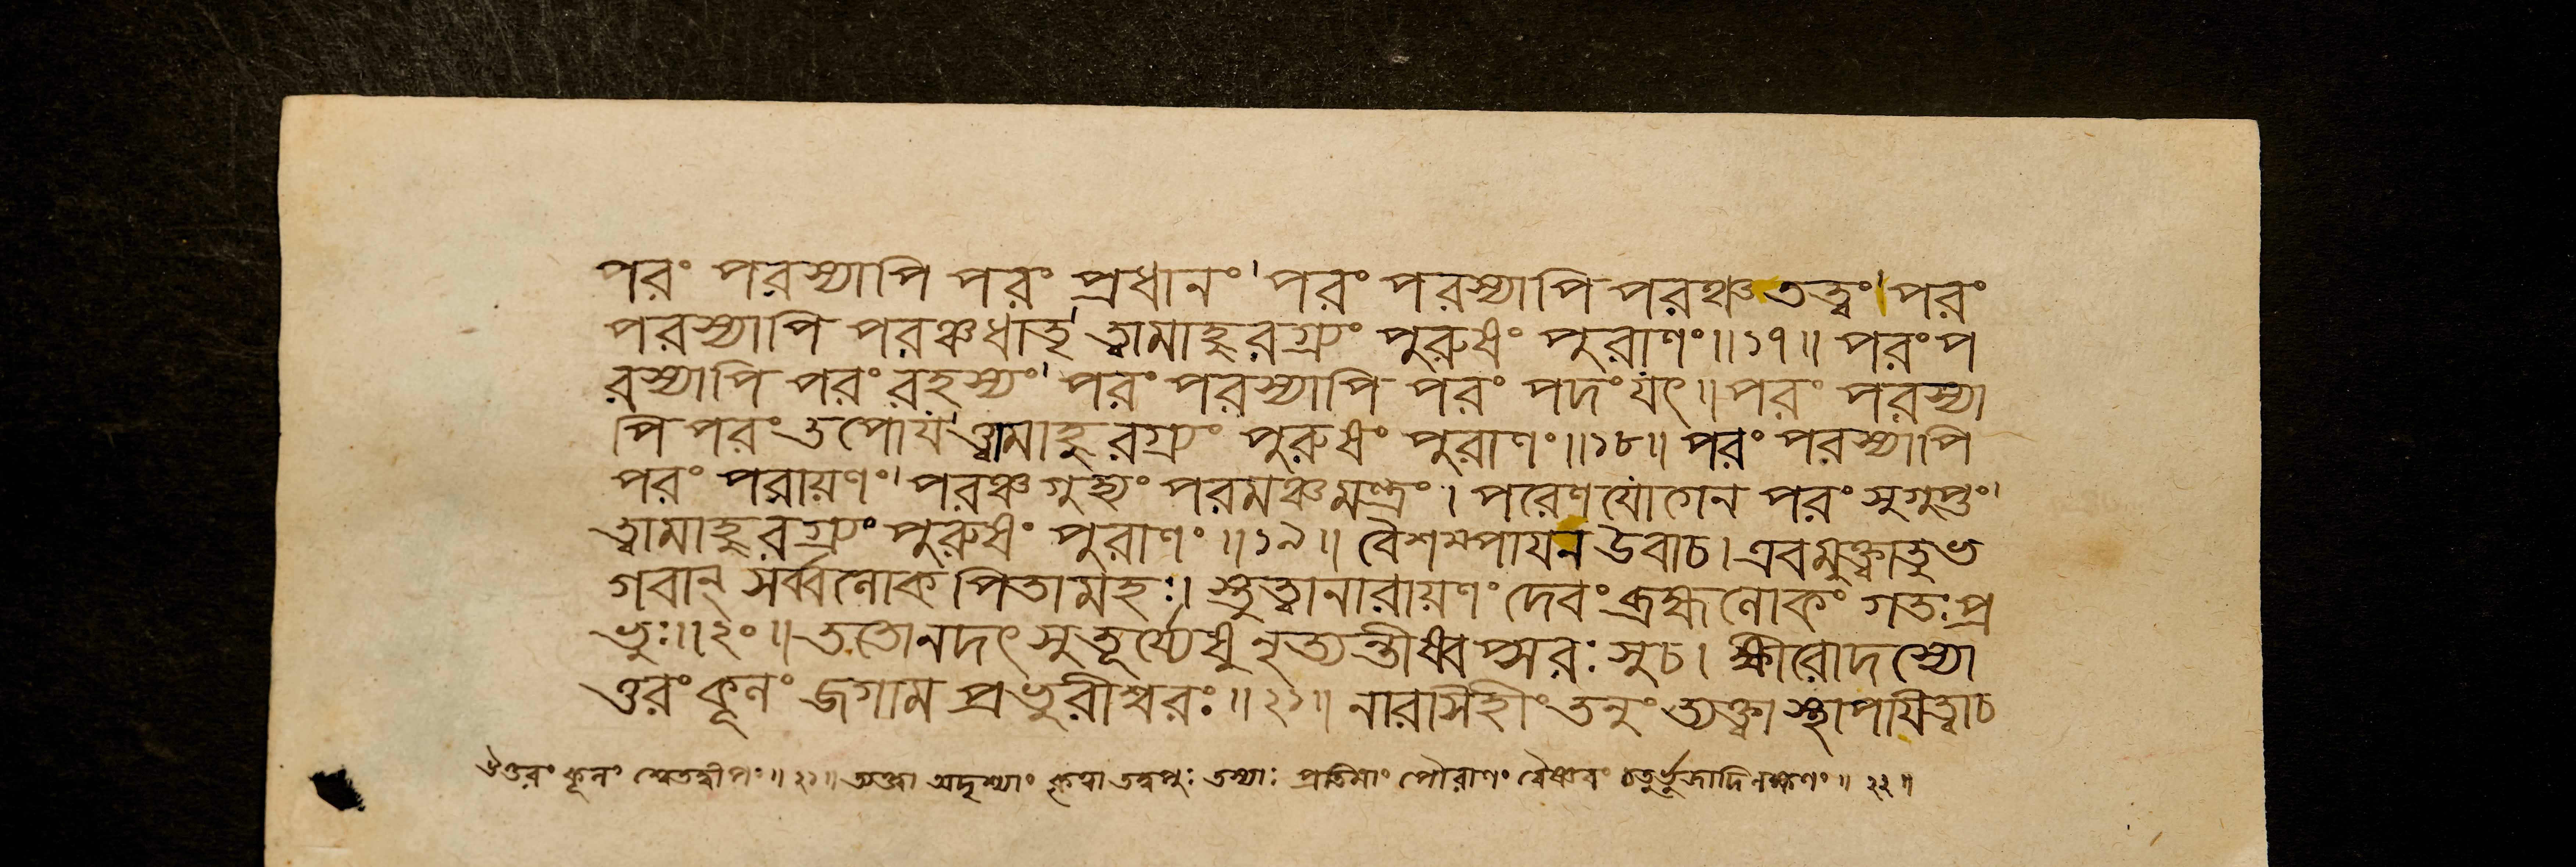 পরং পরস্যাপি পরং প্রধানং' পরং পরস্যাপি পরঞ্চ তত্ত্বং' পরং
পরস্যাপি পরঞ্চ ধাতৃ' ত্বামাহুরগ্র্যং পুরুষং পুরাণং॥১৭॥ পরং প
রস্যাপি পরং রহস্যং' পরং পরস্যাপি পরং পদং যৎ॥ পরং পরস্যা
পি পরং তপোয' ত্ত্বামাহুরগ্র্যং পুরুষং পুরাণং॥১৮॥ পরং পরস্যাপি
পরং পরায়ণং' পরঞ্চ গুহ্যং পরমঞ্চ মন্ত্রং। পরেণ যোগেন পরং সুগুপ্তং'
ত্বামাহুরগ্র্যং পুরুষং পুরাণং॥১৯॥ বৈশম্পাযন উবাচ। এবমুক্ত্বাতুভ
গবান্ সর্ব্বলোক পিতামহঃ। স্তুত্বানারায়ণং দেবং ব্রহ্মলোকং গতঃ প্র
ভুঃ॥২০॥ ততোনদৎ সুতূর্য্যেষু নৃত্যন্তীষ্বপ্সরঃ সুচ। ক্ষীরোদস্যো
ত্তরং কূলং জগাম প্রভুরীশ্বরঃ॥২১॥ নারাসিংহীং তনুং ত্যক্ত্বা স্থাপযিত্বাচ
উত্তরং কূলং শ্বেতদ্বীপং॥২১॥ ত্যক্ত্বা অদৃশ্যাং কৃত্বা তদ্বপুঃ তস্যাঃ প্রতিমাং পৌরাণং বৈষ্ণবং চতুর্ভুজাদি লক্ষণং॥২২॥